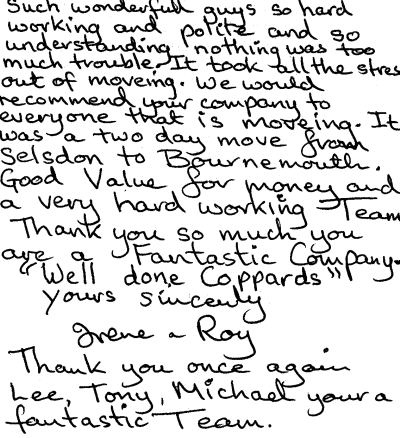 Such wonderfull guys so hard
working and polite and so
understanding nothing was too
much trouble. It took all the stres
out of moveing. We would
recommend your company to
everyone that is moveing. It
was a two day move from
Selsdon to Bournemouth.
Good Value for money and
a very hard working Team
Thank you so much you
are a Fantastic Company.
"Well done Coppards"
Yours sincerly
Irene & Roy
Thank you once again
Lee, Tony, Michael your a
fantastic Team.